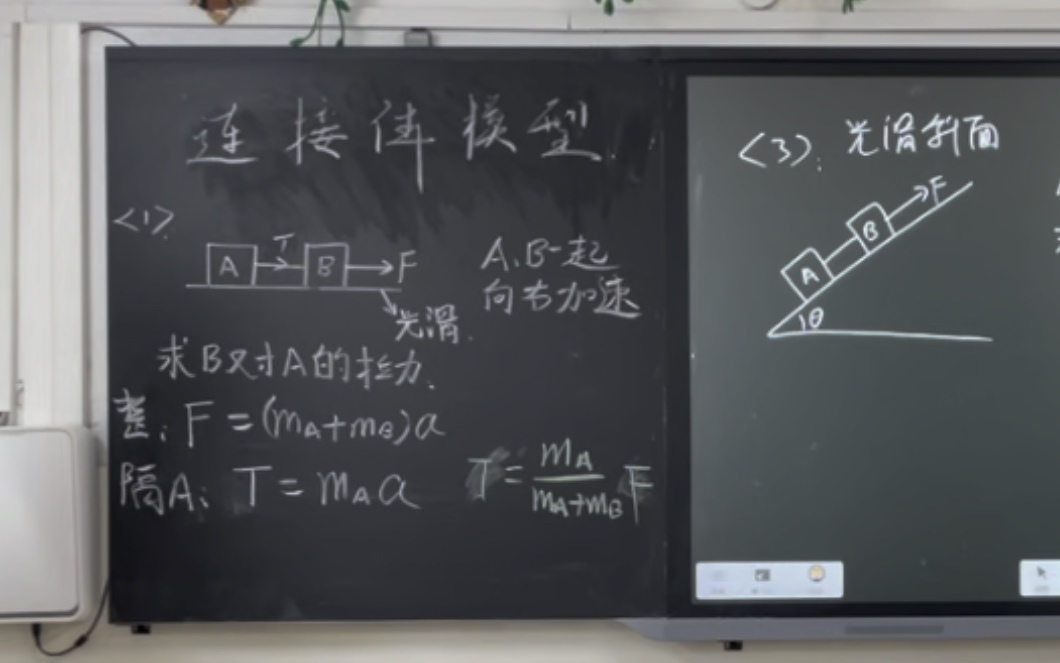 连接体模型
<1>.
A T B F
A、B一起
向右加速
光滑.
求B对A的拉力.
整: F=(mA+mB)a
隔A: T=mAa
T=mA/(mA+mB) F
<3>: 光滑斜面
F
B
A
θ